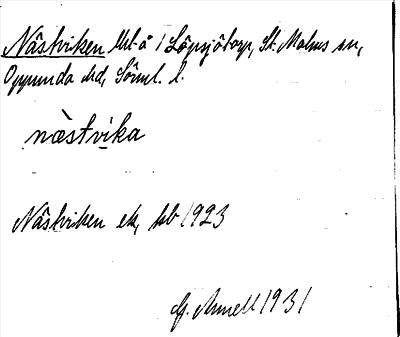 Näsviken lht å 1 Löpsjötorp, St. Malms sn,
Oppunda hd, Söml. l.
næstvika
Näsviken ek, hb 1923
G. Arnell 1931